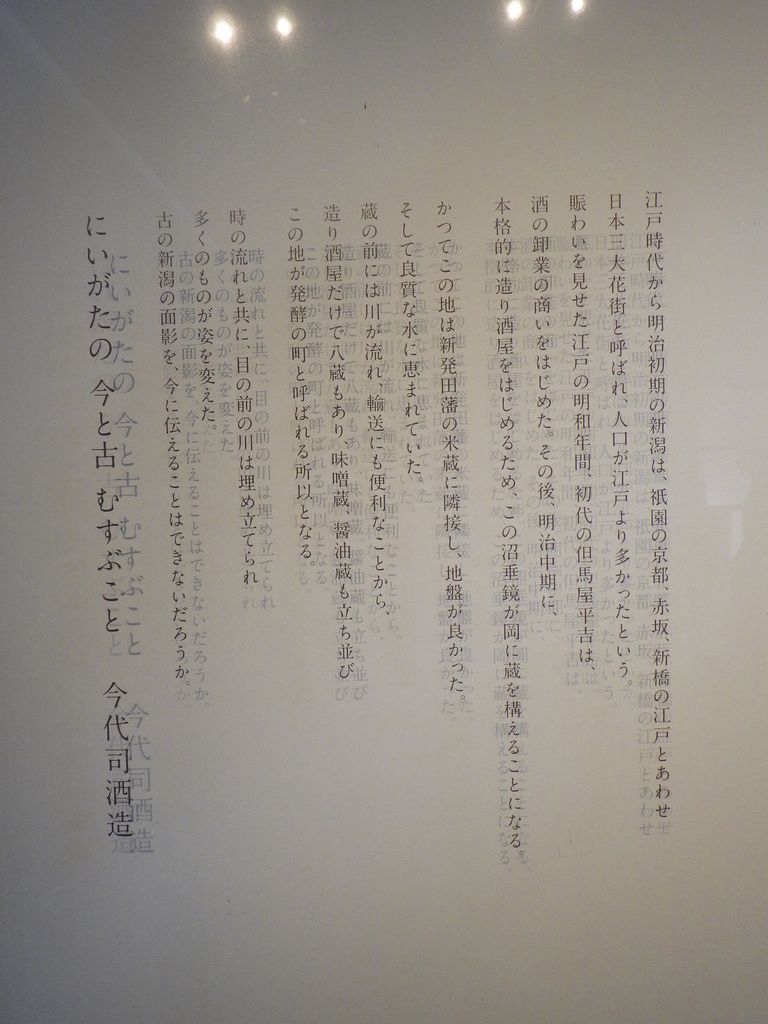 江戸時代から明治初期の新潟は、祇園の京都、赤坂、新橋の江戸とあわせ
日本三大花街と呼ばれ、人口が江戸より多かったという。
賑わいを見せた江戸の明和年間、初代の但馬屋平吉は、
酒の卸業の商いをはじめた。その後、明治中期に、
本格的に造り酒屋をはじめるため、この沼垂鏡が岡に蔵を構えることになる。
かつてこの地は新発田藩の米蔵に隣接し、地盤が良かった。
そして良質な水に恵まれていた。
蔵の前には川が流れ、輸送にも便利なことから、
造り酒屋だけで八蔵もあり、味噌蔵、醤油蔵も立ち並び
この地が発酵の町と呼ばれる所以となる。
時の流れと共に、目の前の川は埋め立てられ
多くのものが姿を変えた。
古の新潟の面影を、今に伝えることはできないだろうか。
にいがたの 今と古 むすぶこと 今代司酒造